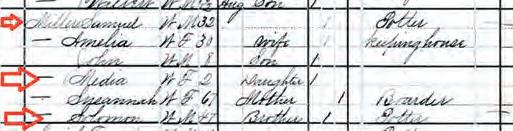 Aug Son
Miller Samuel W M 32 1 Potter
— Amelia W F 30 Wife 1 Keeping house
— John W M 8 Son 1
— Media W F 2 Daughter 1
— Susannah W F 67 Mother 1 Boarder
— Solomon W M 47 Brother 1 Potter